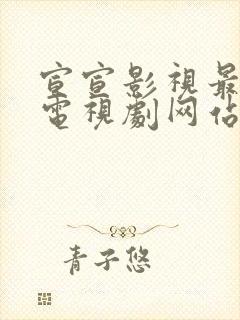 宣宣影視最
電視劇网佔
青子悠